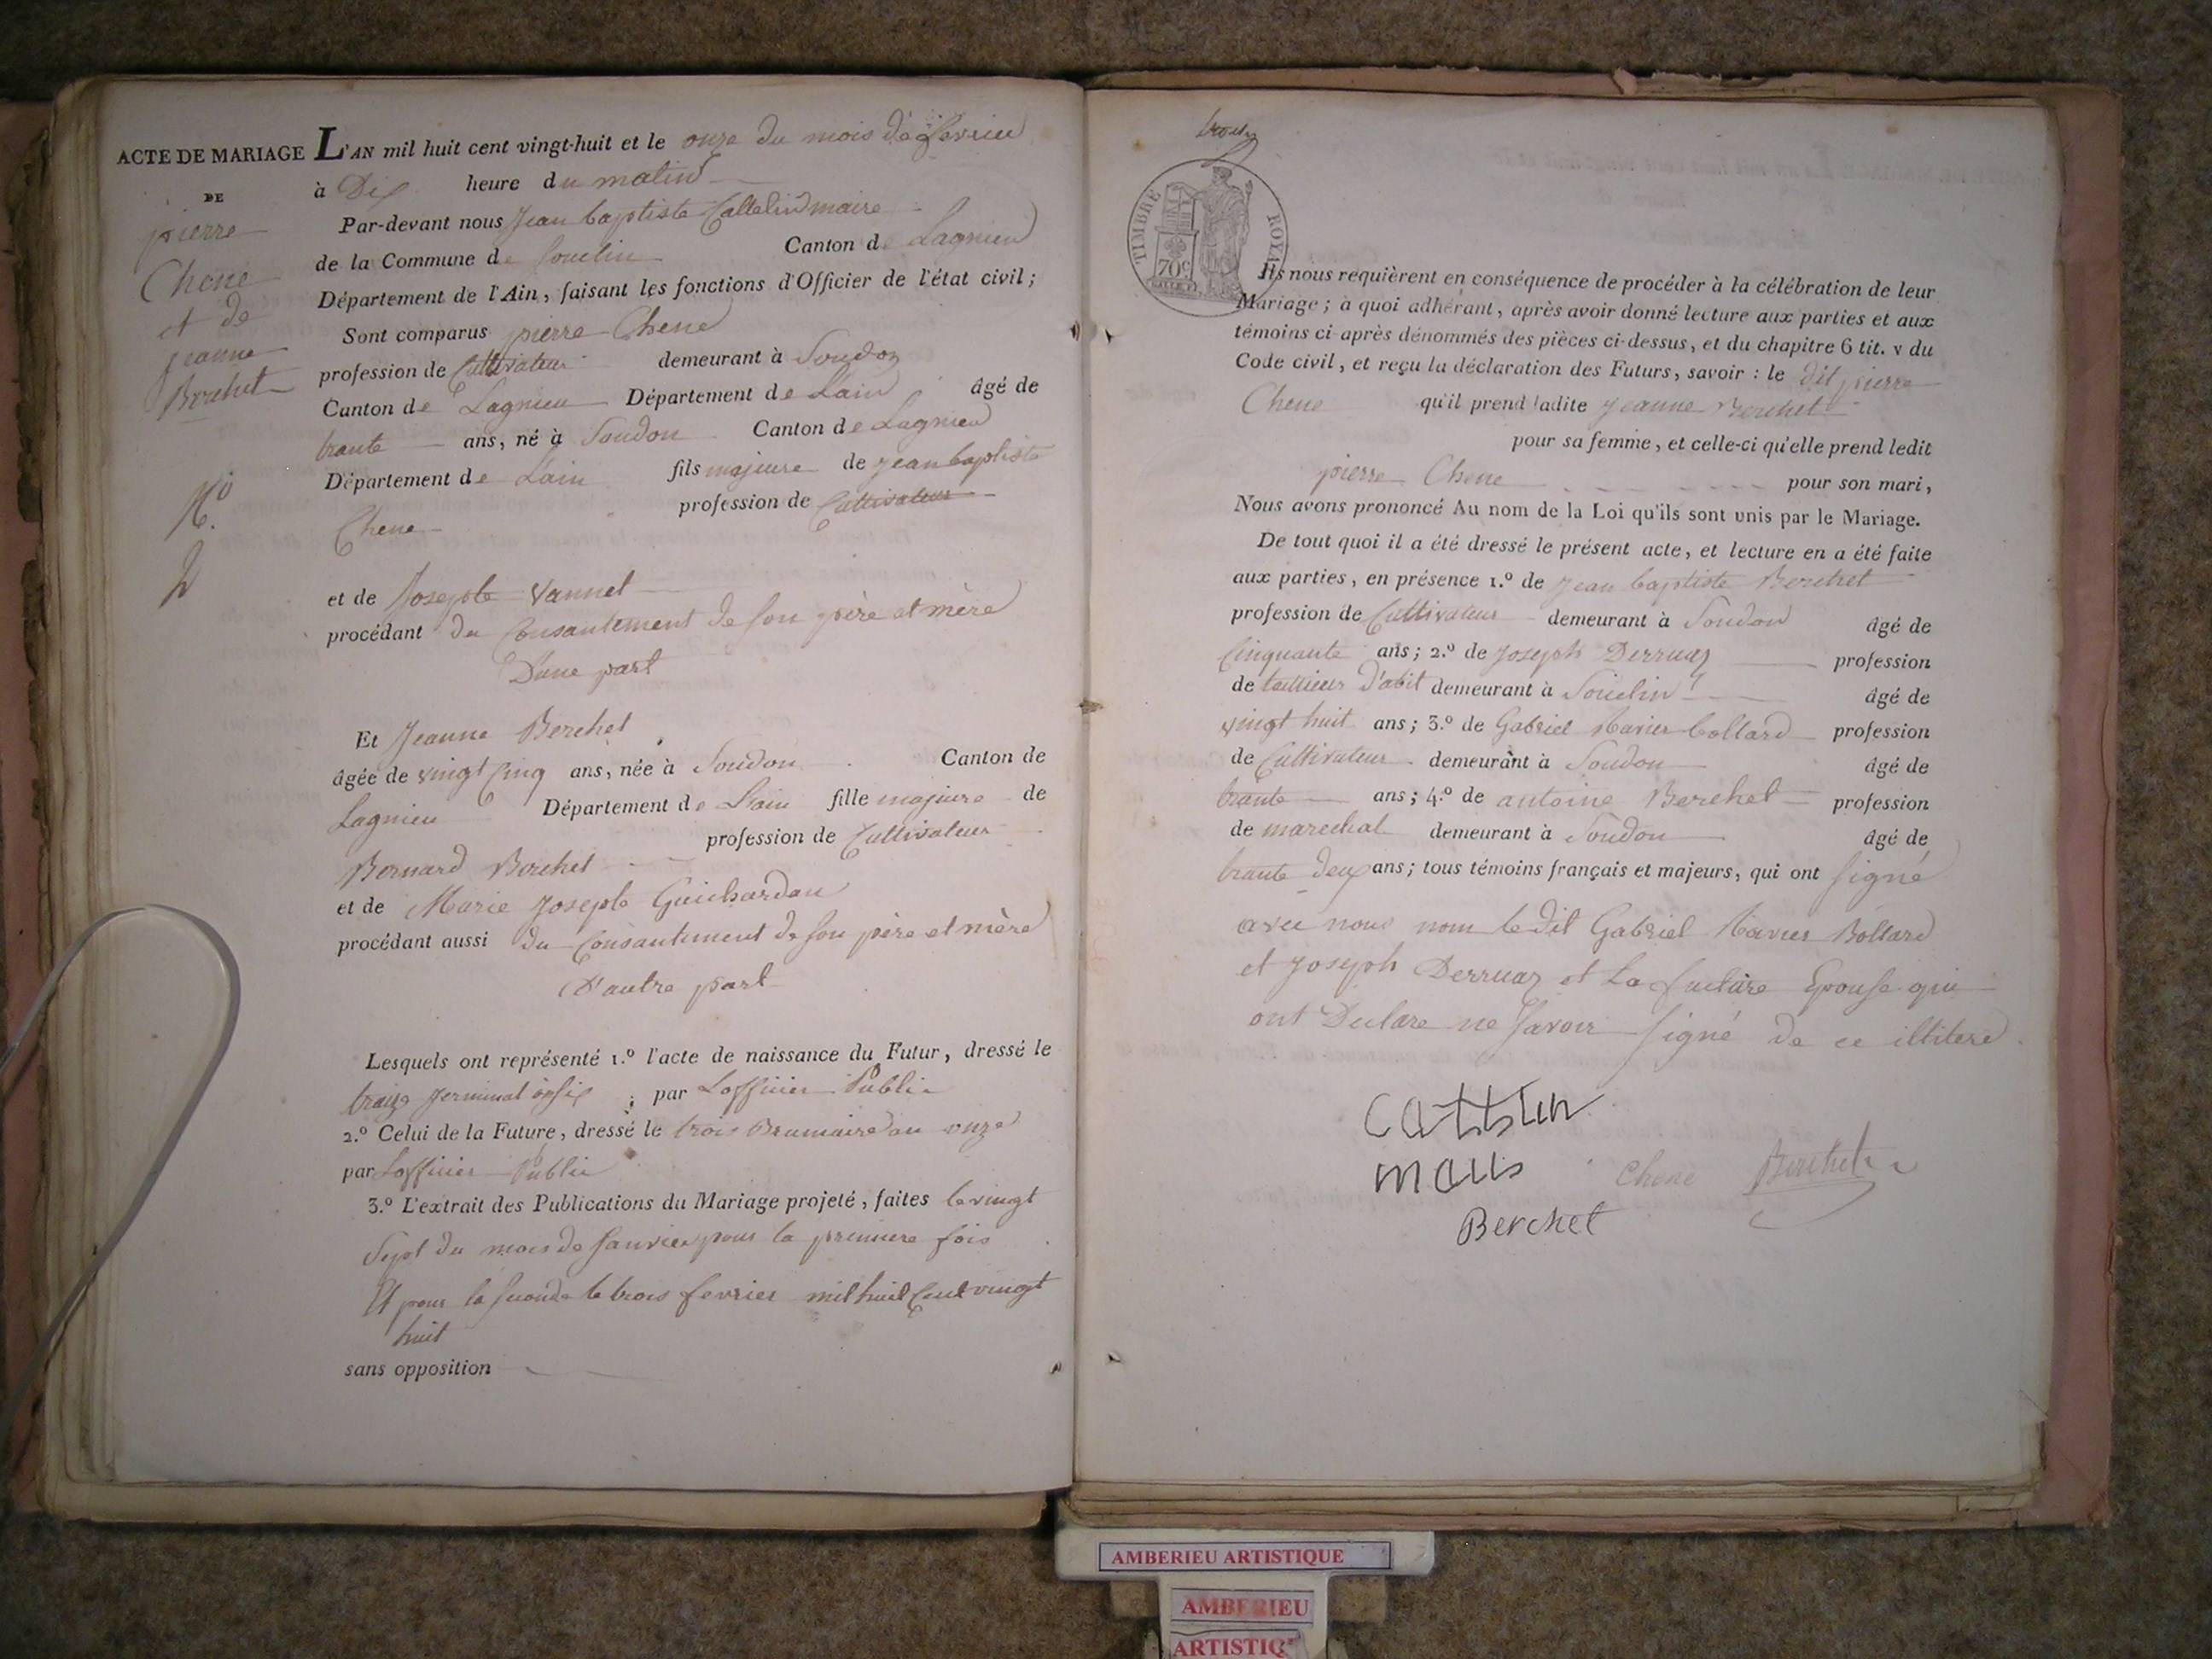 ACTE DE MARIAGE
DE
pierre
Chene
et de
jeanne
Berchet
N.º
2
L'AN mil huit cent vingt-huit et le onze du mois de fevrier
à Dix heure du matin
Par-devant nous Jean baptiste Cattelin maire
de la Commune de Souclin Canton de Lagnieu
Département de l'Ain, faisant les fonctions d'Officier de l'état civil;
Sont comparus pierre Chene
profession de Cultivateur demeurant à Soudon
Canton de Lagnieu Département de Lain âgé de
trante ans, né à Soudon Canton de Lagnieu
Département de Lain fils majeure de jean baptiste
Chene profession de Cultivateur
et de Josephe Vannet
procédant du Consantement de son père et mère
D'une part
Et Jeanne Berchet
âgée de vingt Cinq ans, née à Soudon Canton de
Lagnieu Département de Lain fille majeure de
Bernard Berchet profession de Cultivateur
et de Marie Josephe Guichardan
procédant aussi du Consantement de son père et mère
D'autre part
Lesquels ont représenté 1.º l'acte de naissance du Futur, dressé le
germinal par Lofficier Public
2.º Celui de la Future, dressé le trois Brumaire an onze
par Lofficier Public
3.º L'extrait des Publications du Mariage projeté, faites le vingt
Sept du mois de Janvier pour la premiere fois
Et pour la seconde le trois fevrier mil huit Cent vingt
huit
sans opposition
TIMBRE ROYAL
70c
Ils nous requièrent en conséquence de procéder à la célébration de leur
Mariage; à quoi adhérant, après avoir donné lecture aux parties et aux
témoins ci-après dénommés des pièces ci-dessus, et du chapitre 6 tit. v du
Code civil, et reçu la déclaration des Futurs, savoir : le dit pierre
Chene qu'il prend ladite jeanne Berchet
pour sa femme, et celle-ci qu'elle prend ledit
pierre Chene pour son mari,
Nous avons prononcé Au nom de la Loi qu'ils sont unis par le Mariage.
De tout quoi il a été dressé le présent acte, et lecture en a été faite
aux parties, en présence 1.º de jean baptiste Berchet
profession de Cultivateur demeurant à Soudon âgé de
Cinquante ans; 2.º de Joseph Derruaz profession
de taillieur d'abit demeurant à Souclin âgé de
vingt huit ans; 3.º de Gabriel Xavier bollard profession
de Cultivateur demeurant à Soudon âgé de
trante ans; 4.º de antoine Berchet profession
de marechal demeurant à Soudon âgé de
trante deux ans; tous témoins français et majeurs, qui ont signé
avec nous nom le dit Gabriel Xavier Bollard
et joseph Derruaz et La future Epouse qui
ont Declare ne savoir signé de ce
Cattelin
maire
chene Berchet
Berchet
AMBERIEU ARTISTIQUE
AMBERIEU
ARTISTIQ